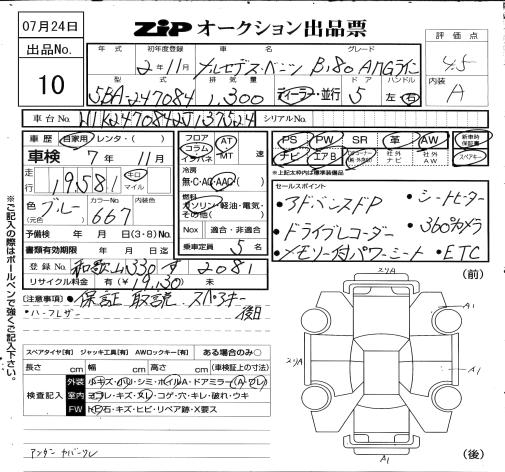 07月24日
ZiP オークション出品票
出品No.
10
評価点
4.5
内装
A
年式 初年度登録 車名 グレード
2年11月 メルセデス・ベンツ B180 AMGライン
型式 排気量 ドア ハンドル
5BA-247084 1,300 ディーラー・並行 5 左・右
車台No. W1K2470842J137524 シリアルNo.
車歴 自家用・レンタ・( )
車検 7年11月
走行 19,581 キロ マイル
色 (元色) ブルー カラーNo. 667 内装色
予備検 年 月 日(3・8)No.
書類有効期限 年 月 日迄
登録No. 和歌山 330 す 2081
リサイクル料金 有(¥19,130) 未
フロア コラム インパネ AT MT 速
冷房 無・C・AC・AAC( )
燃料 ガソリン・軽油・電気・その他( )
Nox 適合・非適合
乗車定員 5名
PS PW SR 革 AW 新車時保証書
ナビ エアB 社外ナビ 社外AW スペアキー
※上記太枠内は標準装備品
セールスポイント
・アドバンスドP ・シートヒーター
・ドライブレコーダー ・360°カメラ
・メモリー付パワーシート ・ETC
(注意事項) ・保証 取説 スペアキー 後日
・ハーフレザー
スペアタイヤ[有] ジャッキ工具[有] AWロックキー[有] ある場合のみ○
長さ cm 幅 cm 高さ cm (車検証上の寸法)
検査記入
外装 小キズ・小凹・シミ・ホイルA・ドアミラー(A・ワレ)
室内 ヨゴレ・キズ・スレ・コゲ・穴・キレ・破れ・ウキ
FW トビ石・キズ・ヒビ・リペア跡・X要ス
アンダーカバーワレ
※ご記入の際はボールペンで強くご記入下さい。
(前)
A1
A1
A1
(後)